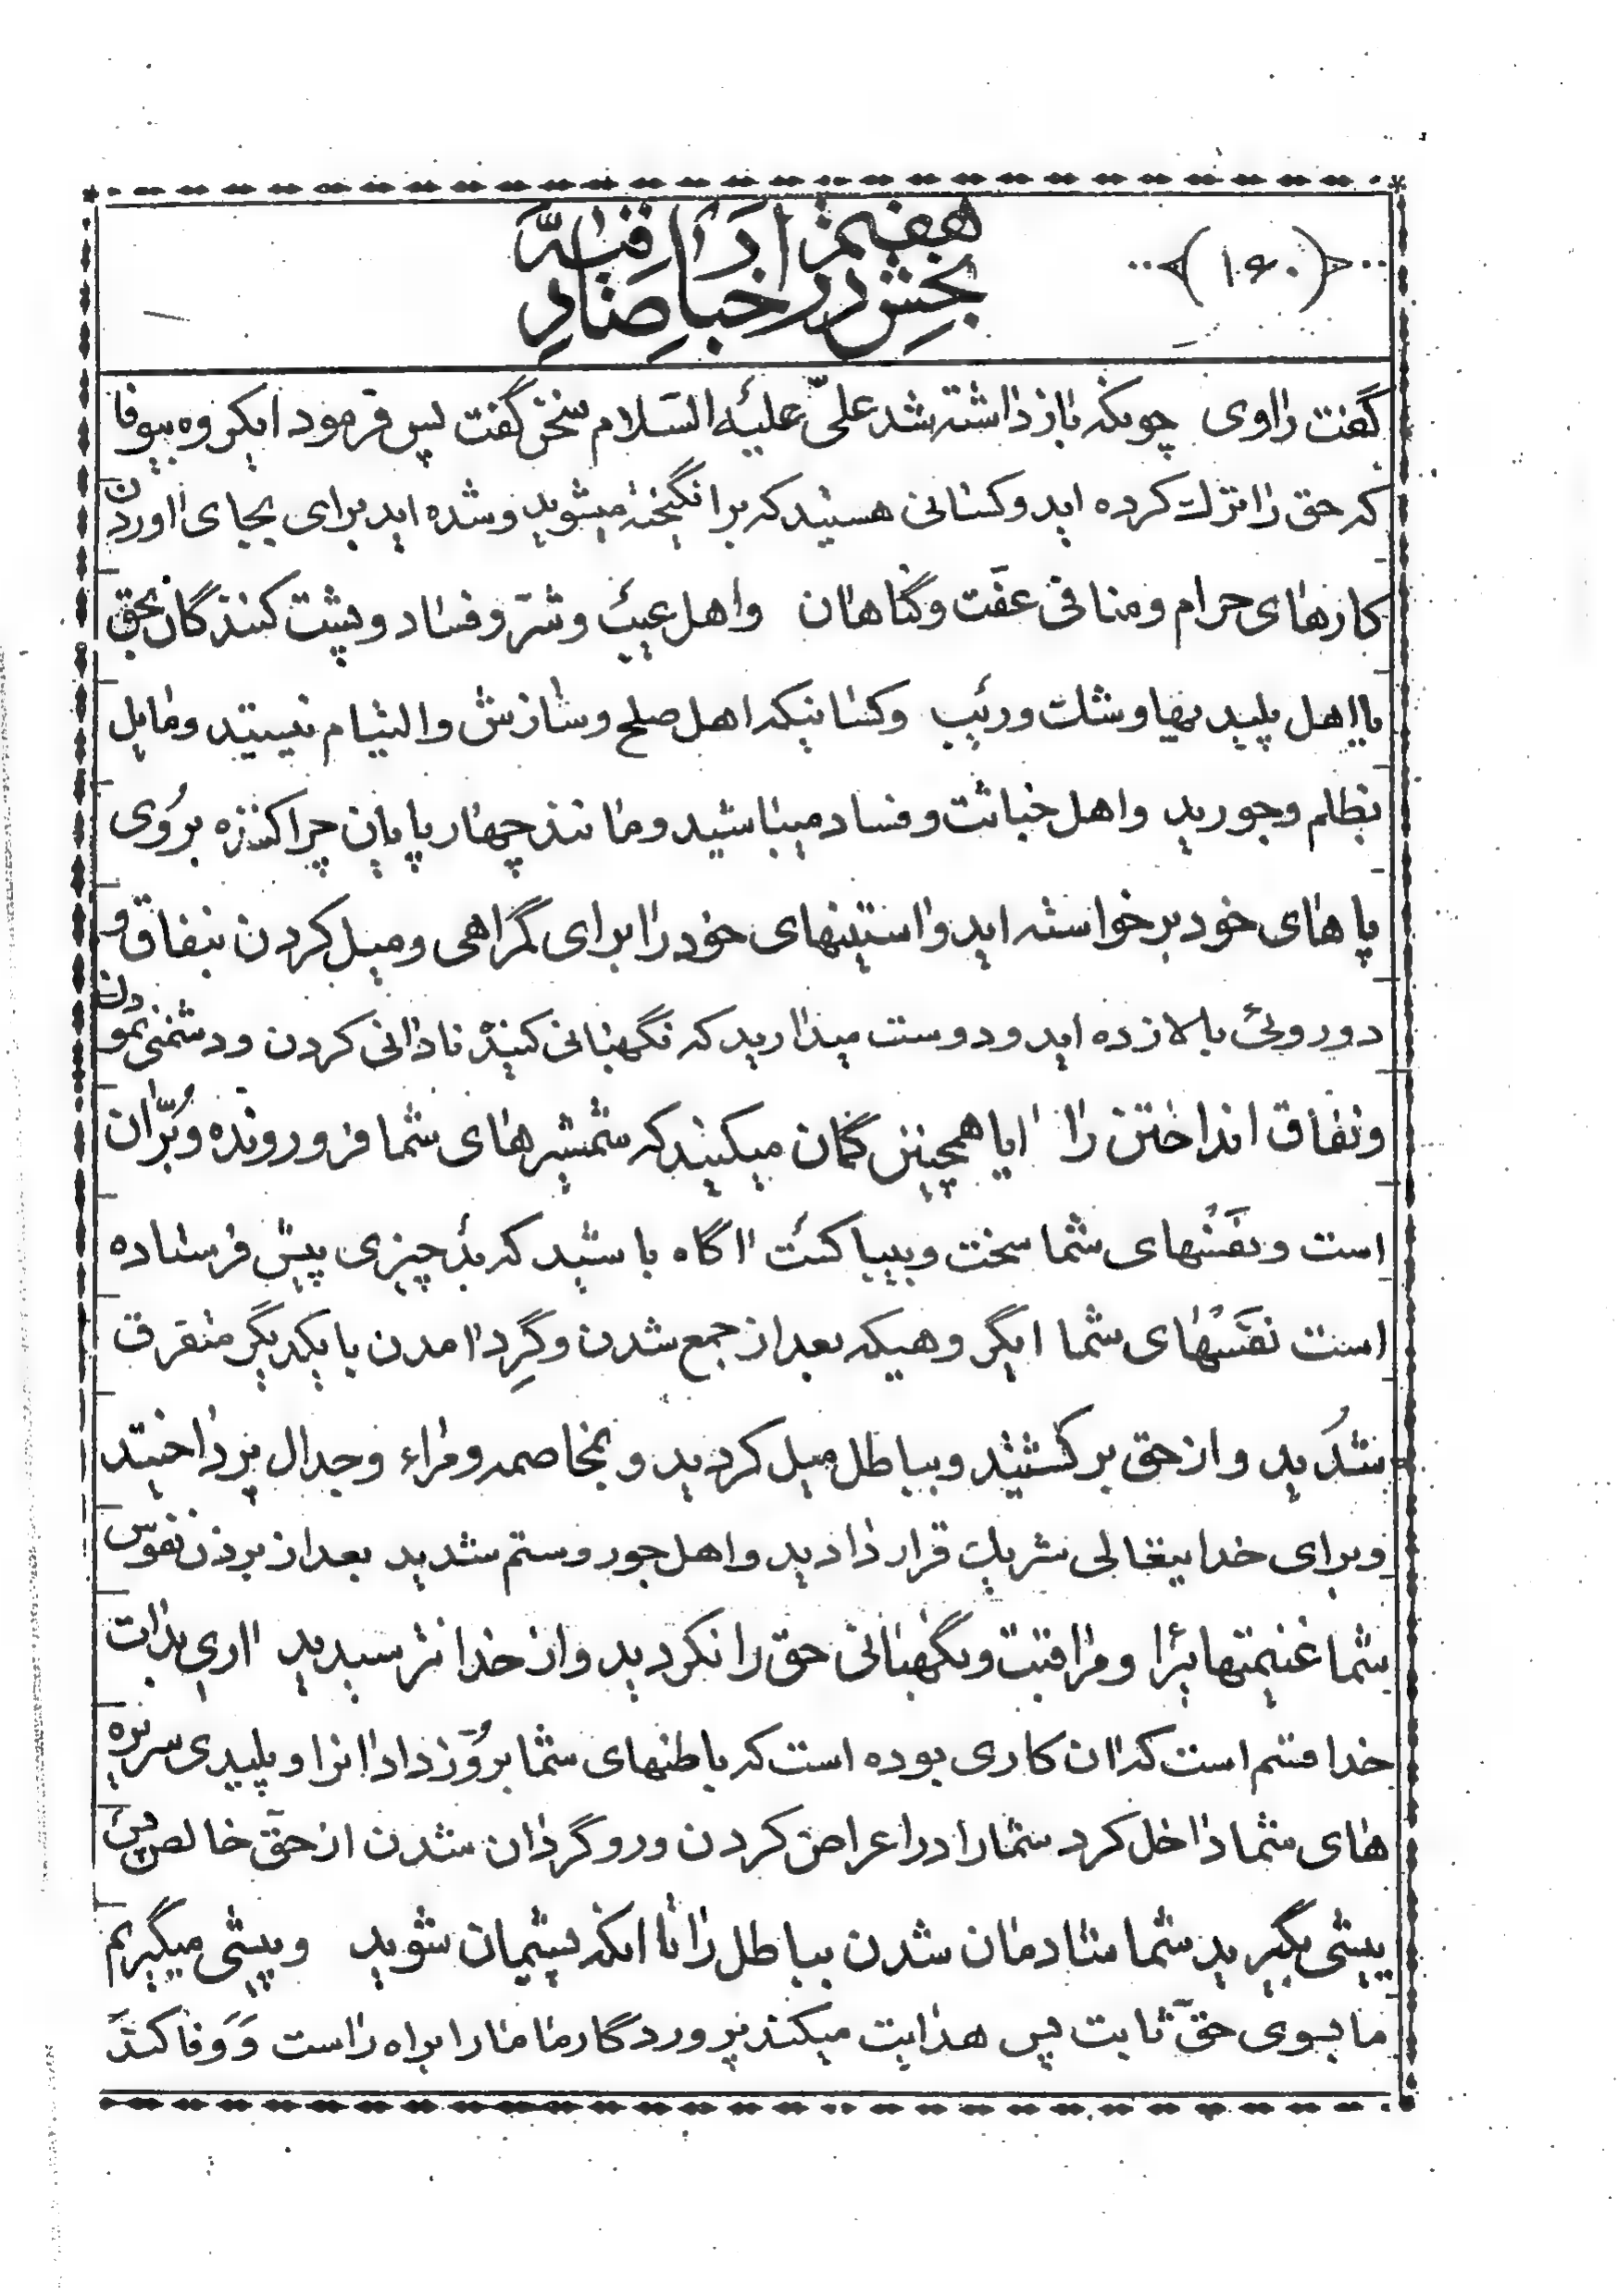 هفتم
بخش در اخبار صادر
(۱۶۰)
گفت راوی چونکه بازداشته شد علیّ علیه السلام سخن گفت پس فرمود ایگروه بیوفا
که حق را ترک کرده اید و کسانی هستید که برانگیخته میشوید و شده اید برای بجای اوردن
کارهای حرام و منافی عفت و گناهان واهل عیب و شرّ و فساد و پشت کنندگان بحق
یا اهل پلیدیها و شک و ریب و کسانیکه اهل صلح و سازش و التیام نیستید و مایل
بظلم و جورید واهل خباثت و فساد میباشید و مانند چهارپایان چراکننده بروی
پاهای خود برخواسته اید و استینهای خود را برای گمراهی و میل کردن بنفاق و
دوروئی بالا زده اید و دوست میدارید که نگهبانی کنید نادانی کردن و دشمنی نمودن
و نفاق انداختن را ایا همچنین گمان میکنید که شمشیرهای شما فرورونده و برّان
است و نفسهای شما سخت و بیباکست اگاه باشید که بد چیزی پیش فرستاده
است نفسهای شما ایگروهیکه بعد از جمع شدن و گرد امدن با یکدیگر متفرق
شدید و از حق برگشتید و بباطل میل کردید و بمخاصمه و مراء و جدال پرداختید
و برای خدایتعالی شریک قرار دادید و اهل جور و ستم شدید بعد از بردن نفوس
شما غنیمتهایرا و مراقبت و نگهبانی حق را نکردید و از خدا نترسیدید اری بذات
خدا قسم است که ان کاری بوده است که باطنهای شما بروز داد انرا و پلیدی سریره
های شما داخل کرد شما را در اعراض کردن و روگردان شدن از حق خالص پس
پیشی بگیرید شما شادمان شدن بباطل را تا انکه پشیمان شوید و پیشی میگیریم
ما بسوی حق ثابت پس هدایت میکند پروردگار ما ما را براه راست و وفا کند